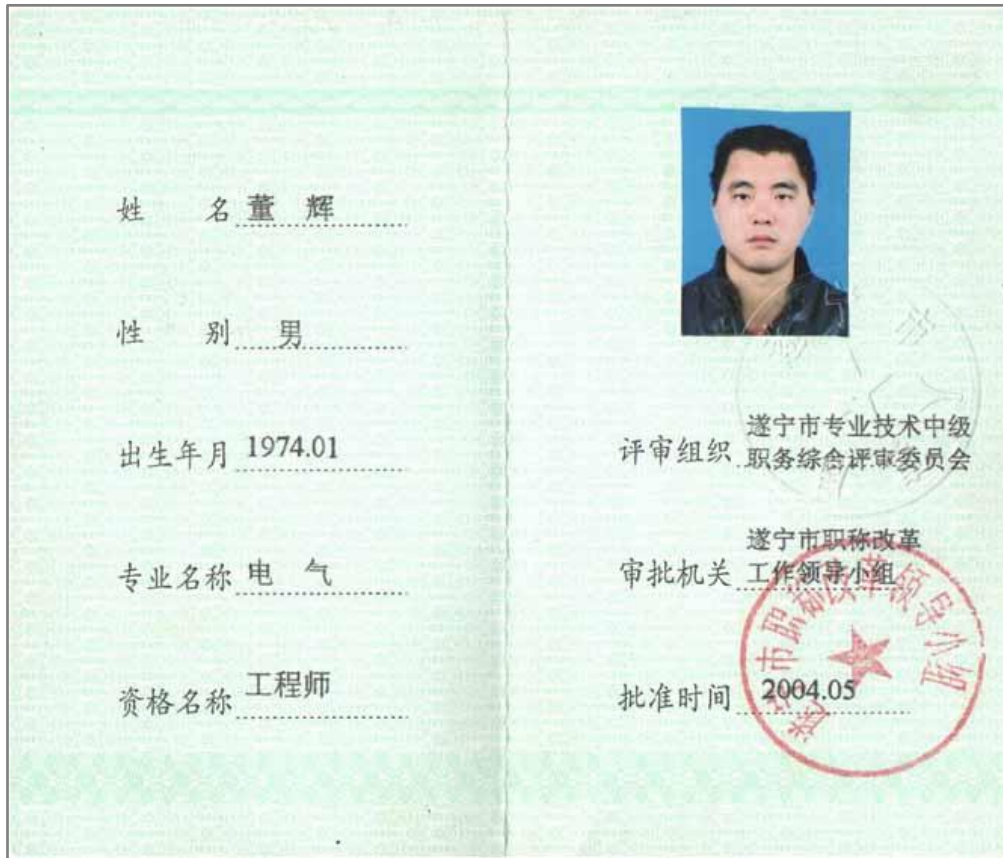 姓 名 董 辉
性 别 男
出生年月 1974.01
专业名称 电 气
资格名称 工程师
评审组织 遂宁市专业技术中级
职务综合评审委员会
审批机关 遂宁市职称改革
工作领导小组
批准时间 2004.05
遂宁市职称改革领导小组